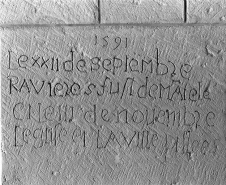 1591
Le XXII de septembre
RAVieres fust
CNeIII de nouembre
Leglise et LAVille